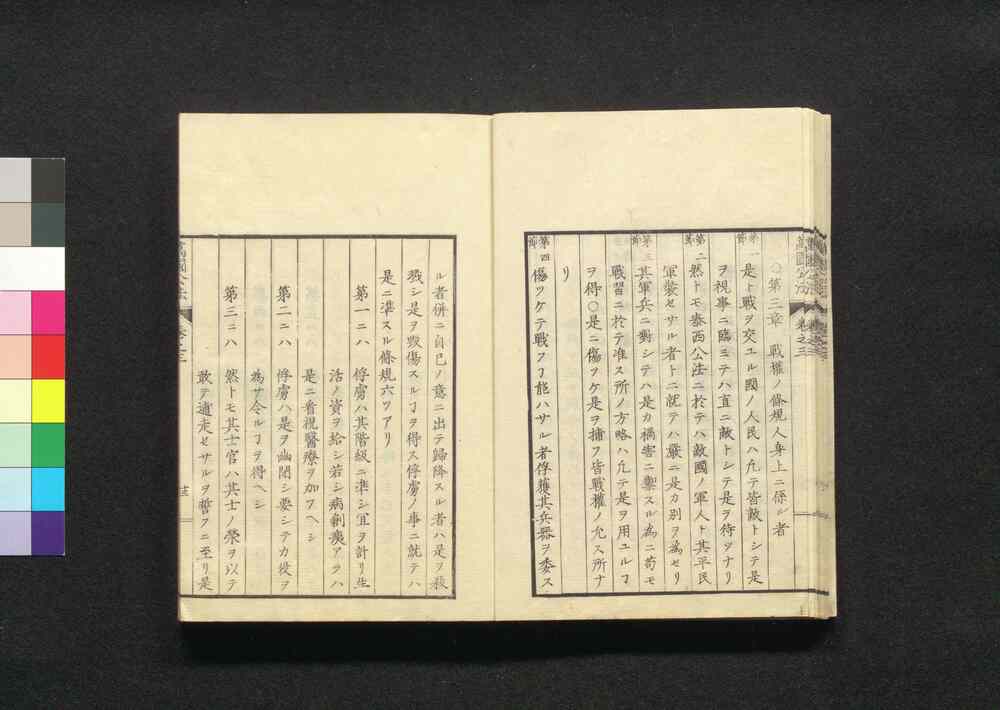 ○第三章 戰權ノ條規人身上ニ係ル者
第一節 是ト戰ヲ交ユル國ノ人民ハ凢テ皆敵トシテ是
ヲ視事ニ臨ミテハ直ニ敵トシテ是ヲ待ツナリ
第二節 然トモ泰西公法ニ於テハ敵國ノ軍人ト其平民
軍裝セサル者トニ就テハ嚴ニ是カ別ヲ為セリ
第三節 其軍兵ニ對シテハ是カ禍害ニ禦スル為ニ苟モ
戰習ニ於テ准ス所ノ方略ハ凢テ是ヲ用ユルヿ
ヲ得○是ニ傷ヲケ是ヲ捕フ皆戰權ノ允ス所ナ
リ
第四節 傷ツケテ戰フヿ能ハサル者俘獲其兵器ヲ委ス
ル者併ニ自己ノ意ニ出テ歸降スル者ハ是ヲ殺
戮シ是ヲ毀傷スルヿヲ得ス俘虜ノ事ニ就テハ
是ニ準スル條規六ツアリ
第一ニハ 俘虜ハ其階級ニ準シ宜ヲ計リ生
活ノ資ヲ給シ若シ病創痍アラハ
是ニ看視醫療ヲ加フヘシ
第二ニハ 俘虜ハ是ヲ幽閉シ要シテカ役ヲ
為サ令ルヿヲ得ヘシ
第三ニハ 然トモ其士官ハ其士ノ榮ヲ以テ
敢テ逋走セサルヲ誓フニ至リ是
萬國公法 卷之三
十三